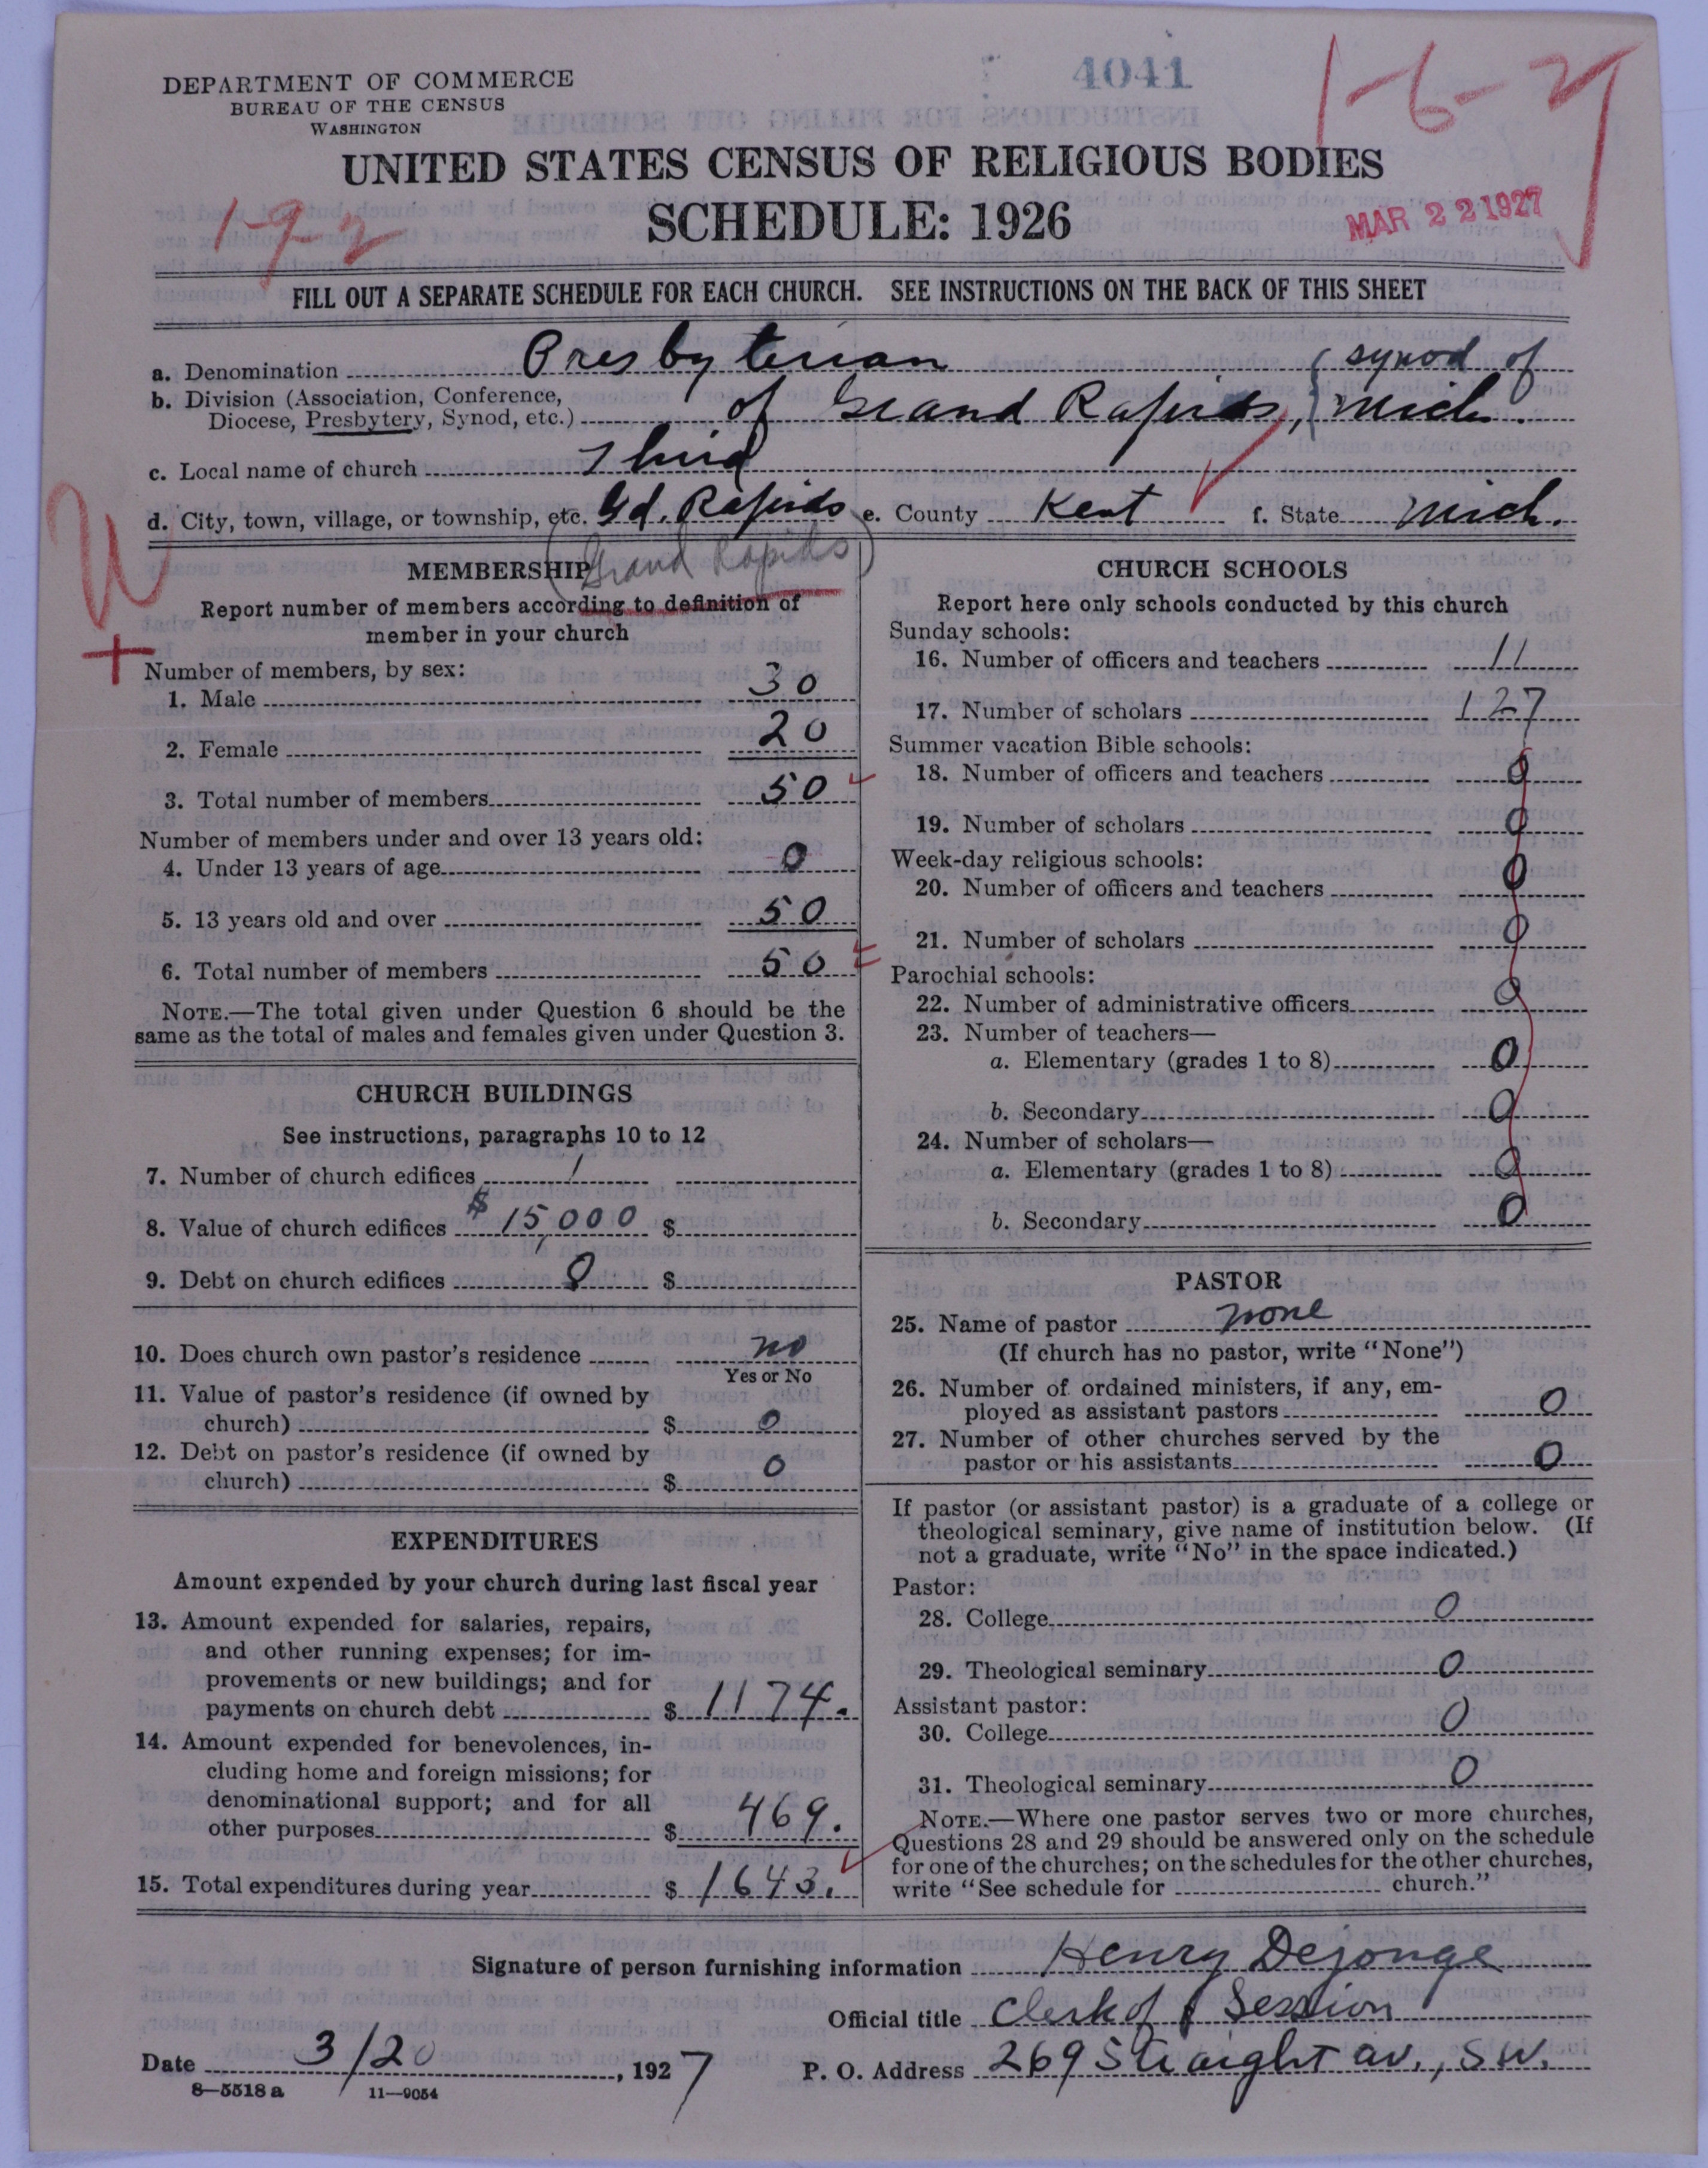 4041
1-6-27
DEPARTMENT OF COMMERCE
BUREAU OF THE CENSUS
WASHINGTON
UNITED STATES CENSUS OF RELIGIOUS BODIES
SCHEDULE: 1926
1-9-2
MAR 22 1927
FILL OUT A SEPARATE SCHEDULE FOR EACH CHURCH. SEE INSTRUCTIONS ON THE BACK OF THIS SHEET
a. Denomination Presbyterian { synod of
b. Division (Association, Conference,
Diocese, Presbytery, Synod, etc.) of Grand Rapids, Mich.
c. Local name of church Third
d. City, town, village, or township, etc. Gd. Rapids e. County Kent f. State Mich.
(Grand Rapids)
MEMBERSHIP
Report number of members according to definition of
member in your church
Number of members, by sex:
1. Male 30
2. Female 20
3. Total number of members 50
Number of members under and over 13 years old:
4. Under 13 years of age 0
5. 13 years old and over 50
6. Total number of members 50
NOTE.—The total given under Question 6 should be the
same as the total of males and females given under Question 3.
CHURCH BUILDINGS
See instructions, paragraphs 10 to 12
7. Number of church edifices 1
8. Value of church edifices $15,000 $
9. Debt on church edifices 0 $
10. Does church own pastor's residence no
Yes or No
11. Value of pastor's residence (if owned by
church) $ 0
12. Debt on pastor's residence (if owned by
church) $ 0
EXPENDITURES
Amount expended by your church during last fiscal year
13. Amount expended for salaries, repairs,
and other running expenses; for im-
provements or new buildings; and for
payments on church debt $ 1174.
14. Amount expended for benevolences, in-
cluding home and foreign missions; for
denominational support; and for all
other purposes $ 469.
15. Total expenditures during year $ 1643.
CHURCH SCHOOLS
Report here only schools conducted by this church
Sunday schools:
16. Number of officers and teachers 11
17. Number of scholars 127
Summer vacation Bible schools:
18. Number of officers and teachers 0
19. Number of scholars 0
Week-day religious schools:
20. Number of officers and teachers 0
21. Number of scholars 0
Parochial schools:
22. Number of administrative officers 0
23. Number of teachers—
a. Elementary (grades 1 to 8) 0
b. Secondary 0
24. Number of scholars—
a. Elementary (grades 1 to 8) 0
b. Secondary 0
PASTOR
25. Name of pastor none
(If church has no pastor, write "None")
26. Number of ordained ministers, if any, em-
ployed as assistant pastors 0
27. Number of other churches served by the
pastor or his assistants 0
If pastor (or assistant pastor) is a graduate of a college or
theological seminary, give name of institution below. (If
not a graduate, write "No" in the space indicated.)
Pastor:
28. College 0
29. Theological seminary 0
Assistant pastor:
30. College 0
31. Theological seminary 0
NOTE.—Where one pastor serves two or more churches,
Questions 28 and 29 should be answered only on the schedule
for one of the churches; on the schedules for the other churches,
write "See schedule for church."
Signature of person furnishing information Henry Dejonge
Official title Clerk of Session
Date 3/20, 1927 P. O. Address 269 Straight av., S.W.
8—5518 a 11—9054